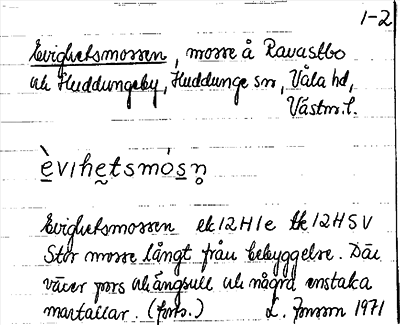 1-2
Evighetsmossen, mosse å Ravastbo
och Huddungeby, Huddunge sn, Våla hd,
Västm. l.
èvıhe̮tsmós̲n̥
Evighetsmossen ek 12H1e tk 12H SV
Stor mosse långt från bebyggelse. Där
växer pors och ängsull och några enstaka
martallar. (forts.) L. Jonsson 1971